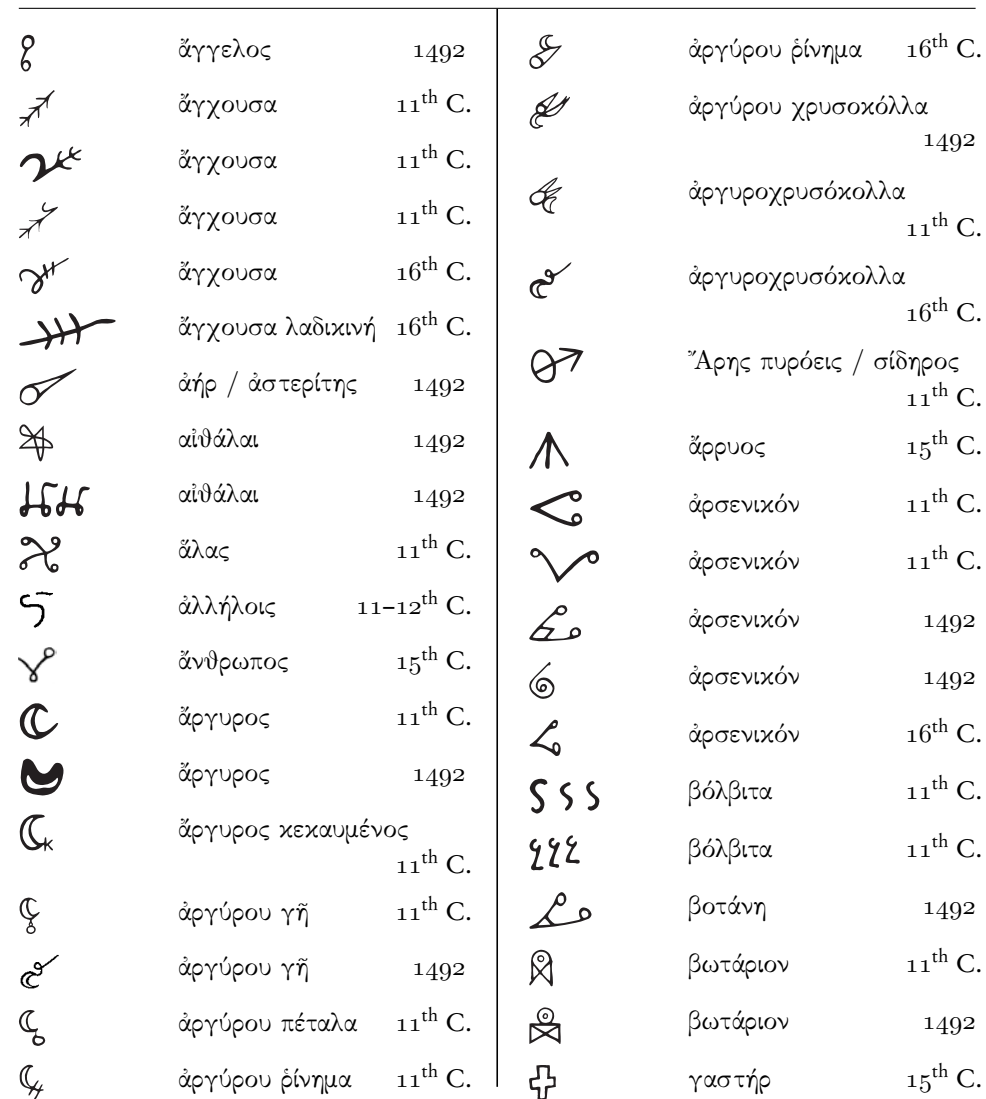 ἄγγελος 1492
ἄγχουσα 11th C.
ἄγχουσα 11th C.
ἄγχουσα 11th C.
ἄγχουσα 16th C.
ἄγχουσα λαδικινή 16th C.
ἀήρ / ἀστερίτης 1492
αἰθάλαι 1492
αἰθάλαι 1492
ἅλας 11th C.
ἀλλήλοις 11–12th C.
ἄνθρωπος 15th C.
ἄργυρος 11th C.
ἄργυρος 1492
ἄργυρος κεκαυμένος
11th C.
ἀργύρου γῆ 11th C.
ἀργύρου γῆ 1492
ἀργύρου πέταλα 11th C.
ἀργύρου ῥίνημα 11th C.
ἀργύρου ῥίνημα 16th C.
ἀργύρου χρυσοκόλλα
1492
ἀργυροχρυσόκολλα
11th C.
ἀργυροχρυσόκολλα
16th C.
Ἄρης πυρόεις / σίδηρος
11th C.
ἄρρυος 15th C.
ἀρσενικόν 11th C.
ἀρσενικόν 11th C.
ἀρσενικόν 1492
ἀρσενικόν 1492
ἀρσενικόν 16th C.
βόλβιτα 11th C.
βόλβιτα 11th C.
βοτάνη 1492
βωτάριον 11th C.
βωτάριον 1492
γαστήρ 15th C.